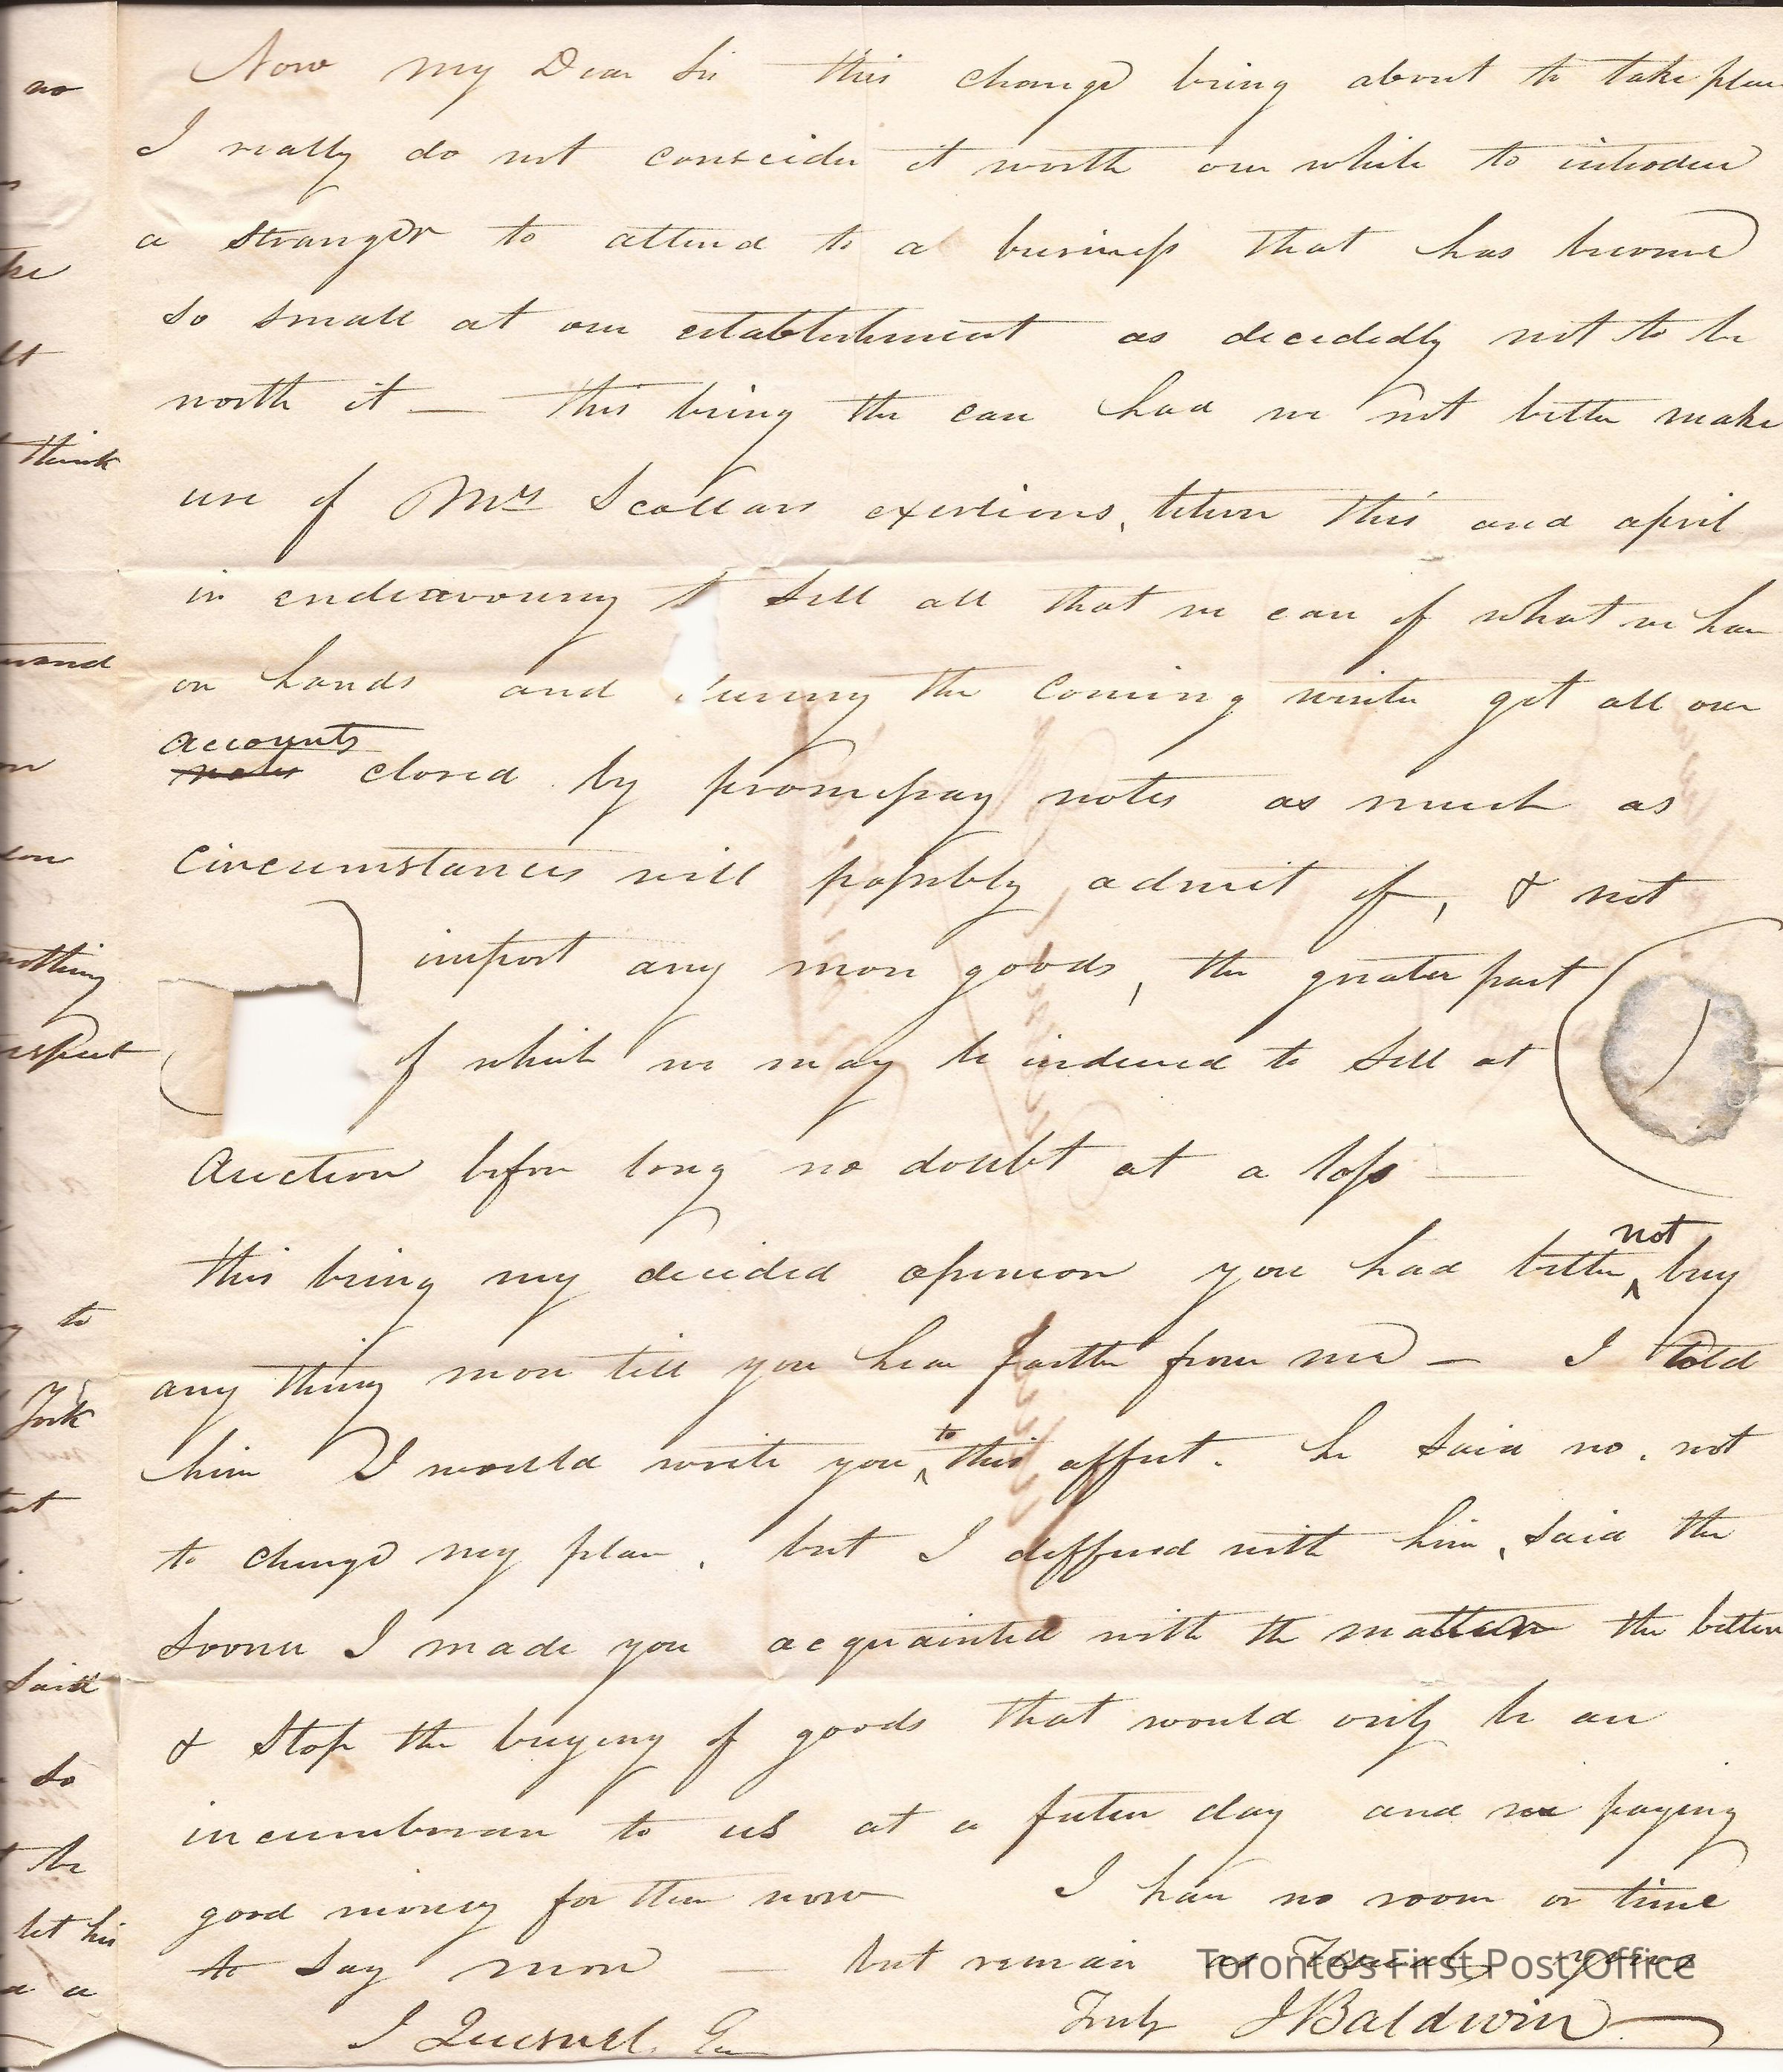 Now my Dear Sir this change being about to take place
I really do not conscider it worth our while to introduce
a stranger to attend to a business that has become
so small at our establishment as decidedly not to be
worth it — this being the case had we not better make
use of Mrs Scollars exertions, between this and april
in endeavouring t sell all that we can of what we have
on hands and during the Coming winter get all our
accounts
notes closed by promissary notes as much as
Circumstances will possibly admit of, & not
import any more goods, the greater part
of which we may be induced to sell at
Auction before long no doubt at a loss —
not
this being my decided opinion you had better ‸ buy
any thing more till you hear farther from me — I told
to
him I would write you ‸ this affect. he said no. not
to change my plan. but I differed with him, said the
sooner I made you acquainted with the matter the better
& Stop the buying of goods that would only be an
incumbrance to us at a future day and we paying
good money for them now I have no room or time
to say more — but remain as yours
Truly JBaldwin
J Quesnell Esq
Toronto's First Post Office
no
the
think
on
nothing
respect
to
York
said
so
the
let his
a